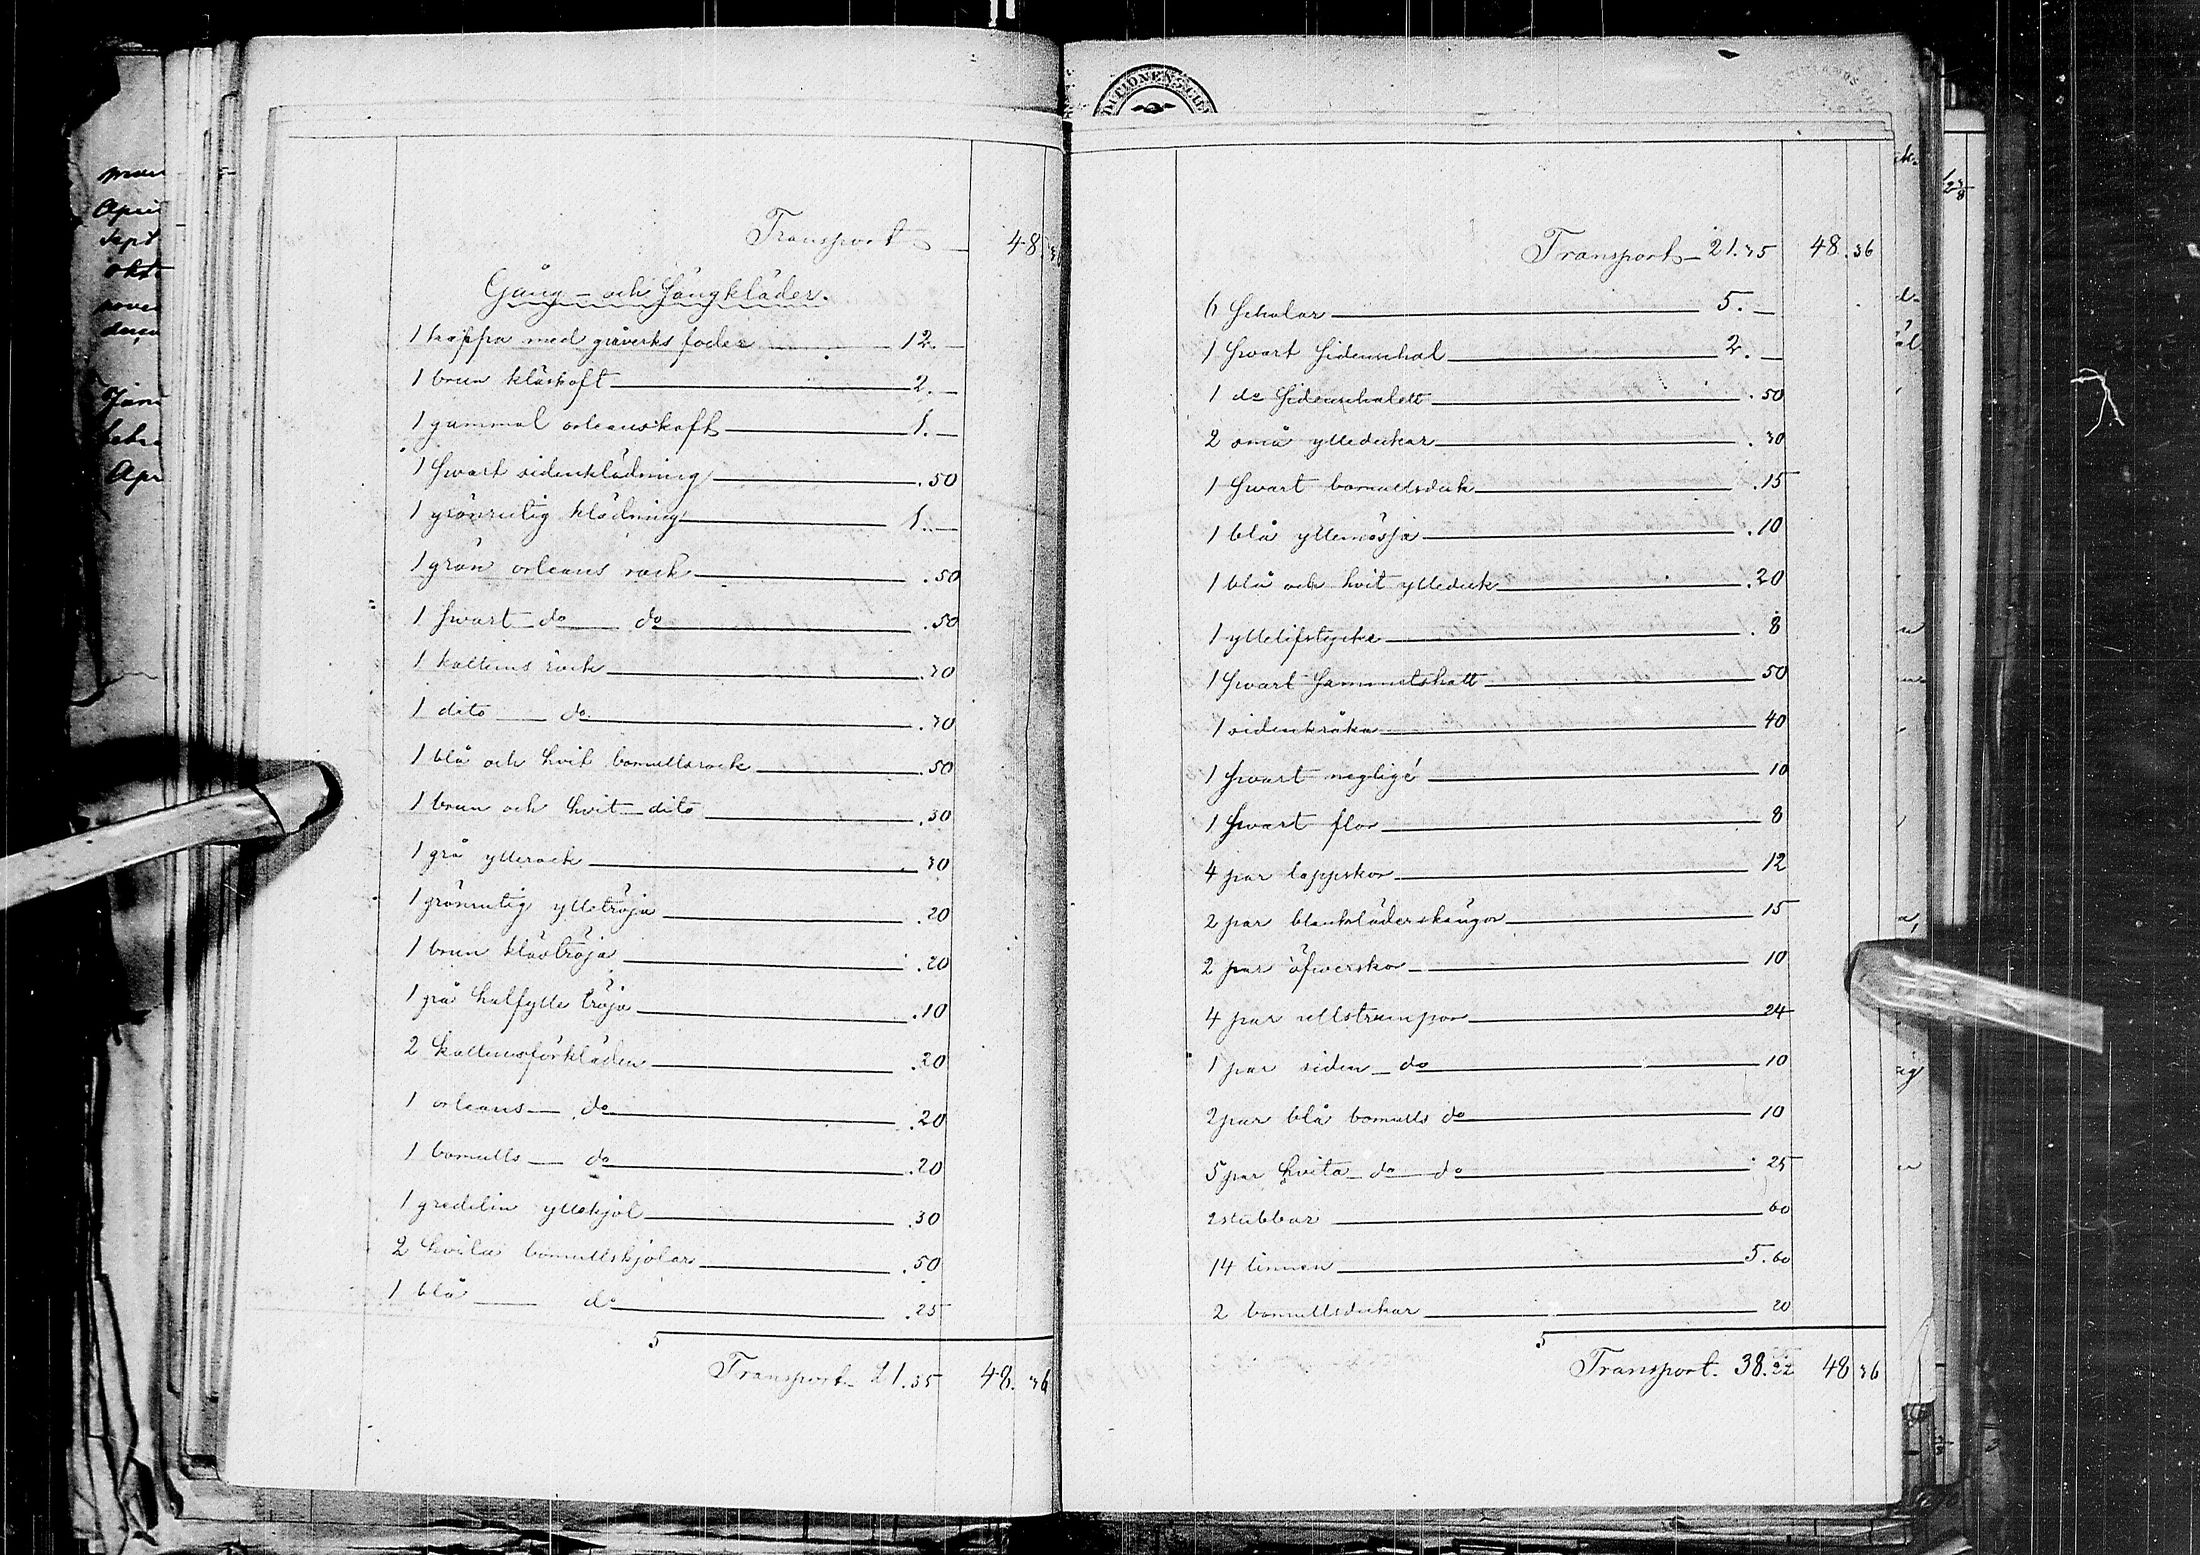 Transport 48. 36
Gång- och Sängkläder.
1 kappa med gråverks foder 12.
1 brun kläskoft 2.
1 gammal orleanskoft 1.
1 Swart sidenklädning .50
1 grönrutig klädning 1.
1 grön orleans rock .50
1 Swart do do .50
1 kattuns rock .30
1 dito do .30
1 blå och hvit bomullsrock .50
1 brun och hvit dito .30
1 grå yllerock .30
1 grönrutig ylletröja .20
1 brun kläströja .20
1 grå halfylle tröja .10
2 kattunsförkläden .20
1 orleans do .20
1 bomulls do .20
1 gredelin yllekjol .30
2 hvita bomullskjolar .50
1 blå do .25
Transport 21.35 48. 36
Transport 21.35 48. 36
6 Schalar 5.
1 Swart Sidenschal 2.
1 do Sidenschalett .50
2 små ylledukar .30
1 Swart bomullsduk .15
1 blå yllemösja .10
1 blå och hvit ylleduk .20
1 yllelifstycke . 8
1 Swart Sammetshatt 50
1 sidenkråka 40
1 Swart negligé 10
1 Swart flor 8
4 par lappskor 12
2 par blankläderskängor 15
2 par öfwerskor 10
4 par ullstrumpor 24
1 par siden do 10
2 par blå bomulls do 10
5 par hvita do do 25
2 stubbar 60
14 linnen 5.60
2 bomullsdukar 20
Transport. 38.22 48 36